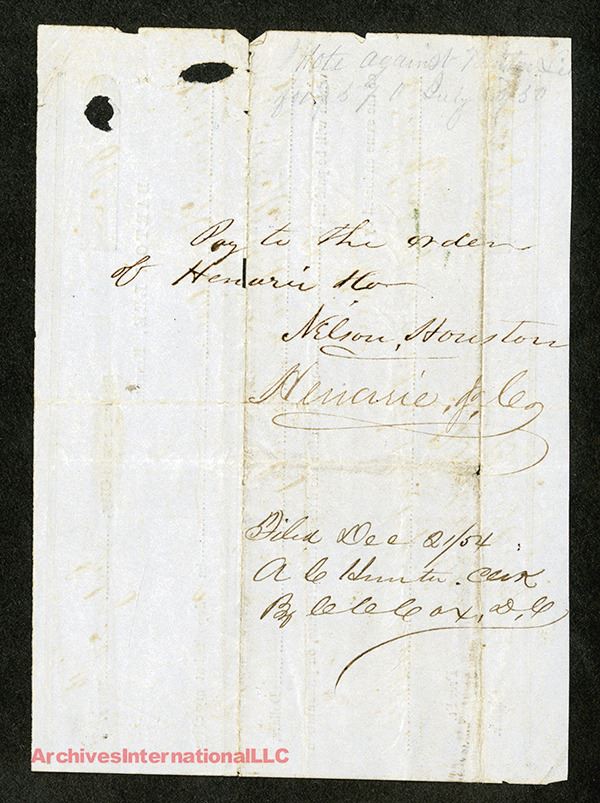 Note against
July 50
Pay to the order
of Henarie &co
Nelson, Houston
Henarie, & Co
Filed Dec 21/54
A C Hunter. Clerk
By C C C Cox, D, C
ArchivesInternationalLLC